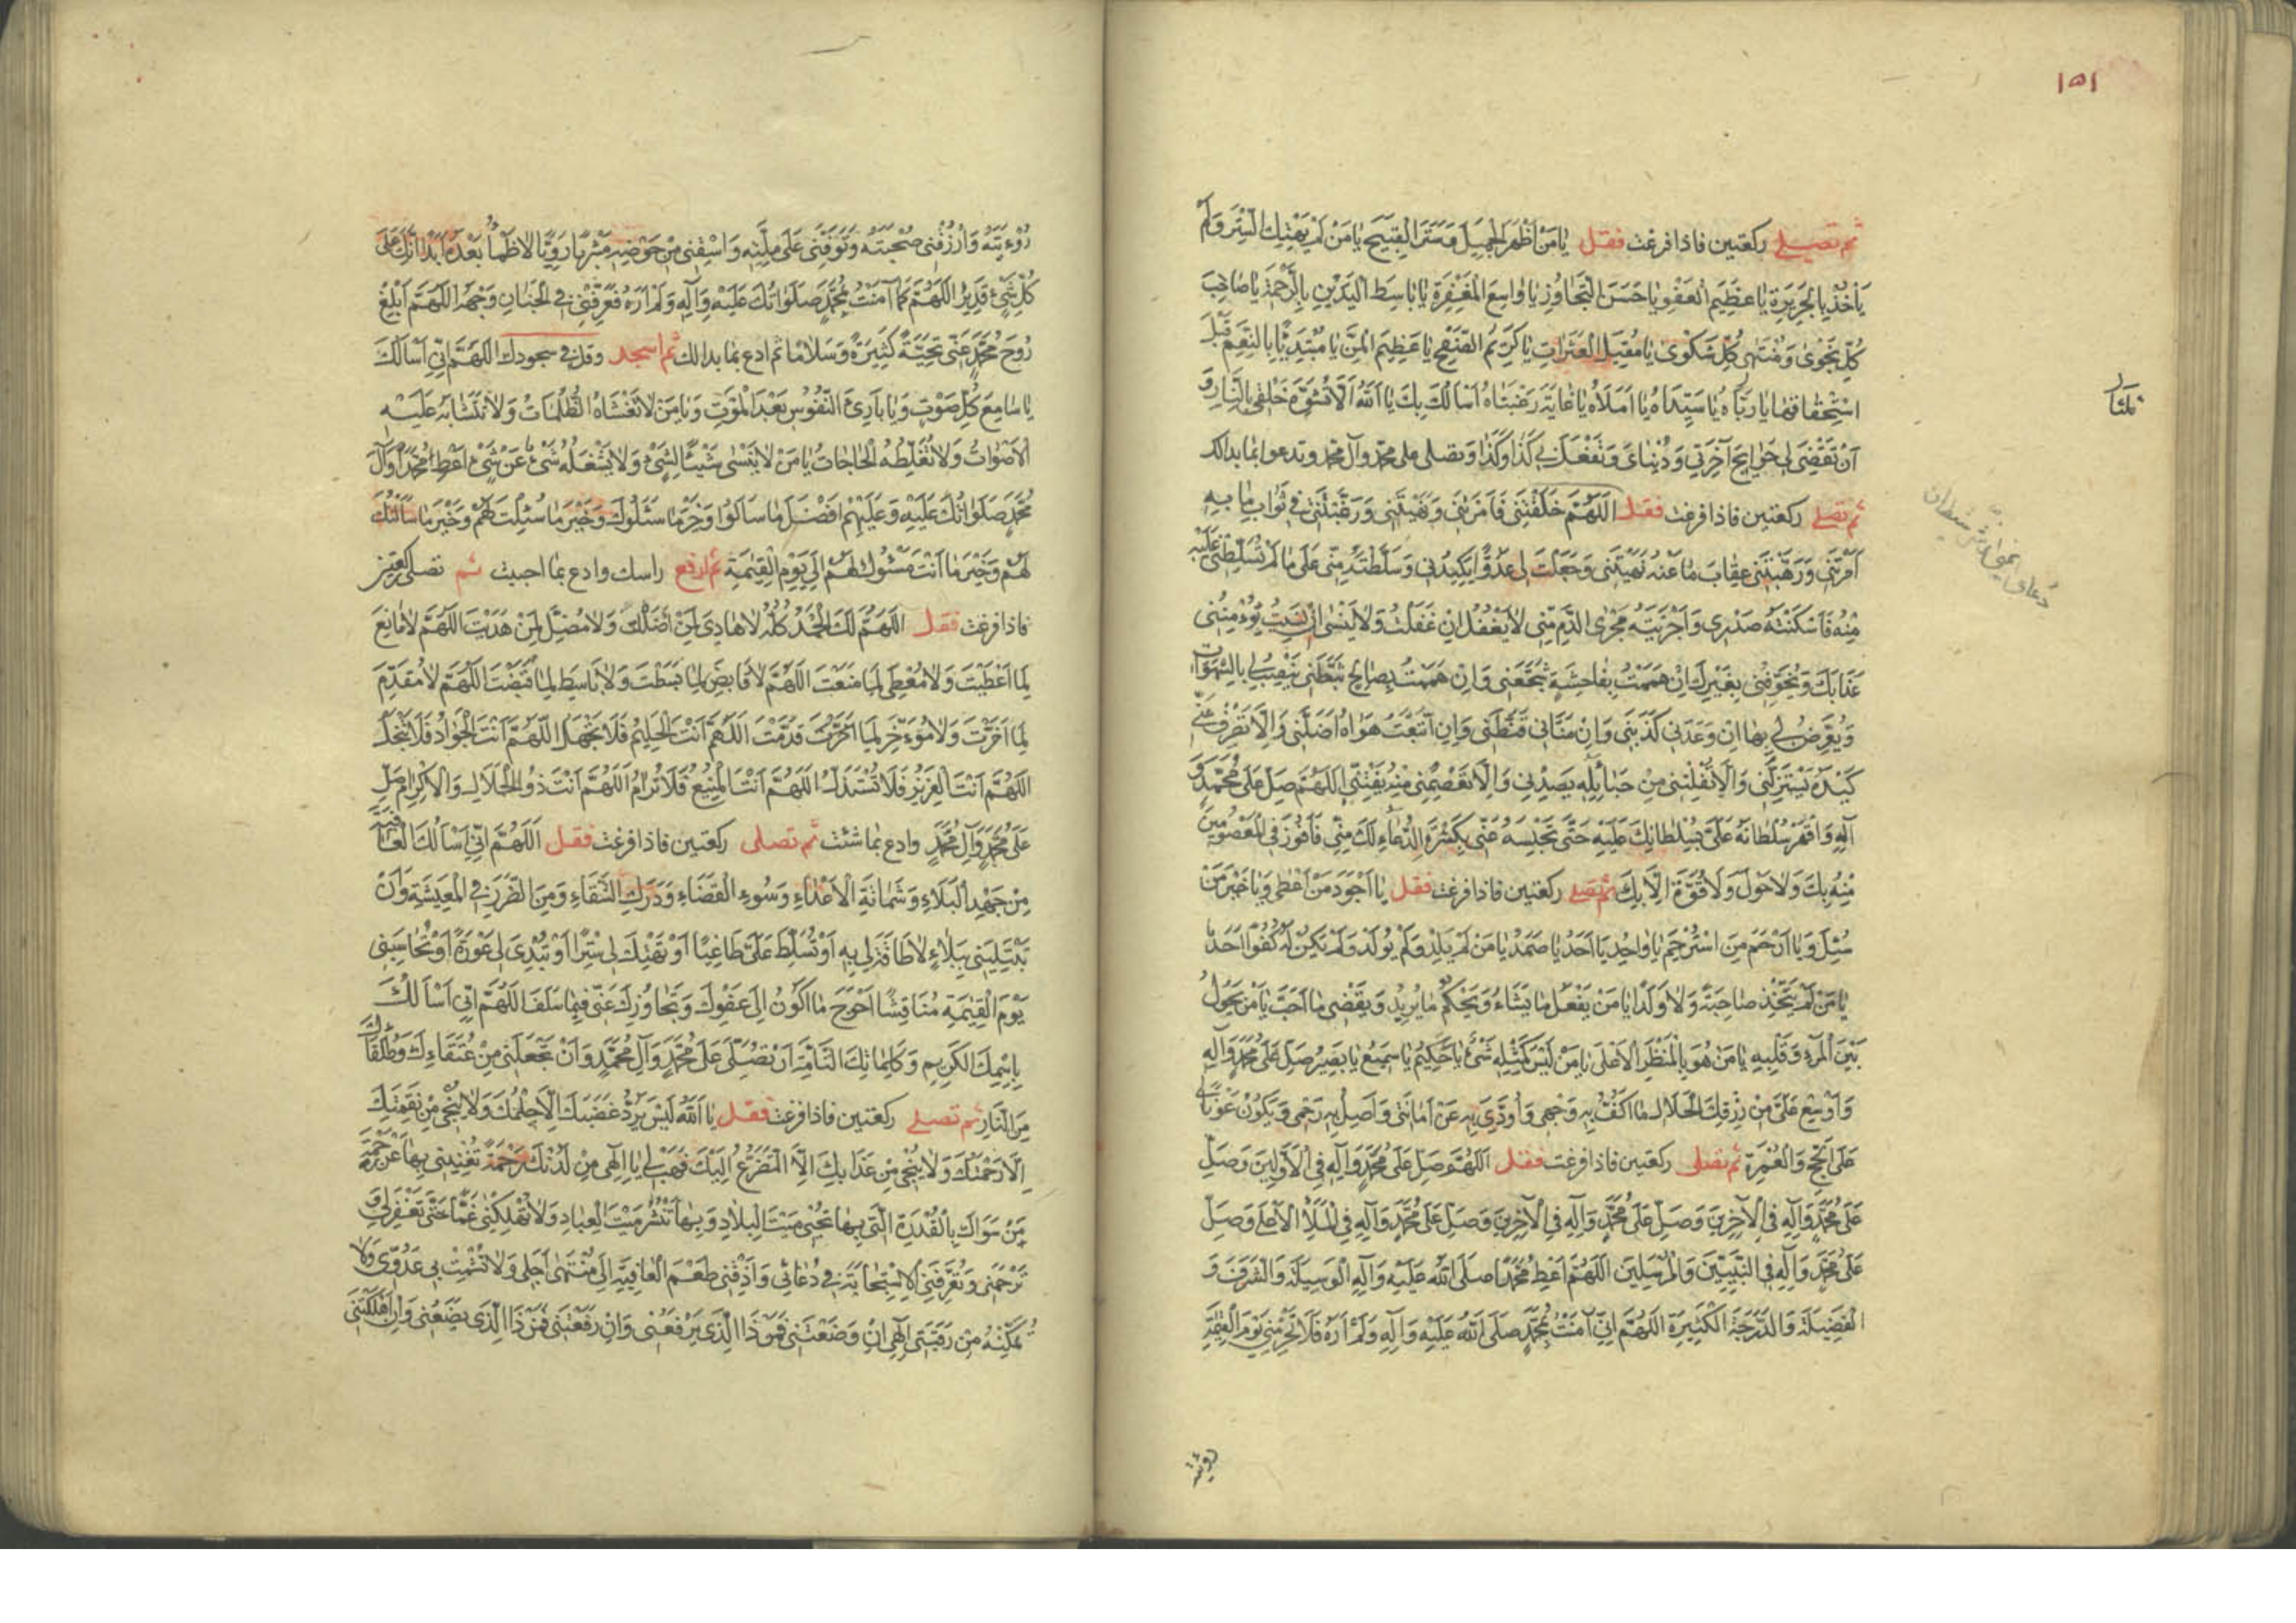 ١٥١
ثم تصلي ركعتين فاذا فرغت فقل يَا مَنْ اَظْهَرَ الْجَمِيلَ وَسَتَرَ الْقَبِيحَ يَا مَنْ لَمْ يَهْتِكِ السِّتْرَ وَلَمْ
يَأْخُذْ بِالْجَرِيرَةِ يَا عَظِيمَ الْعَفْوِ يَا حَسَنَ التَّجَاوُزِ يَا وَاسِعَ الْمَغْفِرَةِ يَا بَاسِطَ الْيَدَيْنِ بِالرَّحْمَةِ يَا صَاحِبَ
كُلِّ نَجْوٰى وَمُنْتَهٰى كُلِّ شَكْوٰى يَا مُقِيلَ الْعَثَرَاتِ يَا كَرِيمَ الصَّفْحِ يَا عَظِيمَ الْمَنِّ يَا مُبْتَدِئًا بِالنِّعَمِ قَبْلَ
اسْتِحْقَاقِهَا يَا رَبَّاهُ يَا سَيِّدَاهُ يَا اَمَلَاهُ يَا غَايَةَ رَغْبَتَاهُ اَسْاَلُكَ بِكَ يَا اَللّٰهُ اَلَّا تُشَوِّهَ خَلْقِي بِالنَّارِ وَ
اَنْ تَقْضِيَ لِي حَوَائِجَ آخِرَتِي وَدُنْيَايَ وَتَفْعَلَ بِي كَذَا وَكَذَا وَتصلى على محمد وآل محمد وتدعوا بما بدالك
ثم تصلي ركعتين فاذا فرغت فقل اَللّٰهُمَّ خَلَقْتَنِي فَاَمَرْتَنِي وَنَهَيْتَنِي وَرَغَّبْتَنِي فِي ثَوَابِ مَا بِهِ
اَمَرْتَنِي وَرَهَّبْتَنِي عِقَابَ مَا عَنْهُ نَهَيْتَنِي وَجَعَلْتَ لِي عَدُوًّا يَكِيدُنِي وَسَلَّطْتَهُ مِنِّي عَلٰى مَا لَمْ تُسَلِّطْنِي عَلَيْهِ
مِنْهُ فَاَسْكَنْتَهُ صَدْرِي وَاَجْرَيْتَهُ مَجْرَى الدَّمِ مِنِّي لَا يَغْفُلُ اِنْ غَفَلْتُ وَلَا يَنْسٰى اِنْ نَسِيتُ يُؤْمِنُنِي
عَذَابَكَ وَيُخَوِّفُنِي بِغَيْرِكَ اِنْ هَمَمْتُ بِفَاحِشَةٍ شَجَّعَنِي وَاِنْ هَمَمْتُ بِصَالِحٍ ثَبَّطَنِي يَنْصِبُ لِي بِالشَّهَوَاتِ
وَيُعَرِّضُ لِي بِهَا اِنْ وَعَدَنِي كَذَبَنِي وَاِنْ مَنَّانِي قَنَّطَنِي وَاِنِ اتَّبَعْتُ هَوَاهُ اَضَلَّنِي وَاِلَّا تَصْرِفْ عَنِّي
كَيْدَهُ يَسْتَزِلَّنِي وَاِلَّا تُفْلِتْنِي مِنْ حَبَائِلِهِ يَصِدْنِي وَاِلَّا تَعْصِمْنِي مِنْهُ يَفْتِنِّي اَللّٰهُمَّ صَلِّ عَلٰى مُحَمَّدٍ وَ
آلِهِ وَاقْهَرْ سُلْطَانَهُ عَلَيَّ بِسُلْطَانِكَ عَلَيْهِ حَتّٰى تَحْبِسَهُ عَنِّي بِكَثْرَةِ الدُّعَاءِ لَكَ مِنِّي فَاَفُوزَ فِي الْمَعْصُومِينَ
مِنْهُ بِكَ وَلَا حَوْلَ وَلَا قُوَّةَ اِلَّا بِكَ ثم تصلي ركعتين فاذا فرغت فقل يَا اَجْوَدَ مَنْ اَعْطٰى وَيَا خَيْرَ مَنْ
سُئِلَ وَيَا اَرْحَمَ مَنِ اسْتُرْحِمَ يَا وَاحِدُ يَا اَحَدُ يَا صَمَدُ يَا مَنْ لَمْ يَلِدْ وَلَمْ يُولَدْ وَلَمْ يَكُنْ لَهُ كُفُوًا اَحَدٌ
يَا مَنْ لَمْ يَتَّخِذْ صَاحِبَةً وَلَا وَلَدًا يَا مَنْ يَفْعَلُ مَا يَشَاءُ وَيَحْكُمُ مَا يُرِيدُ وَيَقْضِي مَا اَحَبَّ يَا مَنْ يَحُولُ
بَيْنَ الْمَرْءِ وَقَلْبِهِ يَا مَنْ هُوَ بِالْمَنْظَرِ الْاَعْلٰى يَا مَنْ لَيْسَ كَمِثْلِهِ شَيْءٌ يَا حَكِيمُ يَا سَمِيعُ يَا بَصِيرُ صَلِّ عَلٰى مُحَمَّدٍ وَآلِهِ
وَاَوْسِعْ عَلَيَّ مِنْ رِزْقِكَ الْحَلَالِ مَا اَكُفُّ بِهِ وَجْهِي وَاُؤَدِّي بِهِ عَنْ اَمَانَتِي وَاَصِلُ بِهِ رَحِمِي وَيَكُونُ عَوْنًا لِي
عَلَى الْحَجِّ وَالْعُمْرَةِ ثم تصلى ركعتين فاذا فرغت فقل اَللّٰهُمَّ صَلِّ عَلٰى مُحَمَّدٍ وَآلِهِ فِي الْاَوَّلِينَ وَصَلِّ
عَلٰى مُحَمَّدٍ وَآلِهِ فِي الْآخِرِينَ وَصَلِّ عَلٰى مُحَمَّدٍ وَآلِهِ فِي الْآخِرِينَ وَصَلِّ عَلٰى مُحَمَّدٍ وَآلِهِ فِي الْمَلَاِ الْاَعْلٰى وَصَلِّ
عَلٰى مُحَمَّدٍ وَآلِهِ فِي النَّبِيِّينَ وَالْمُرْسَلِينَ اَللّٰهُمَّ اَعْطِ مُحَمَّدًا صَلَّى اللّٰهُ عَلَيْهِ وَآلِهِ الْوَسِيلَةَ وَالشَّرَفَ وَ
الْفَضِيلَةَ وَالدَّرَجَةَ الْكَبِيرَةَ اَللّٰهُمَّ اِنِّي آمَنْتُ بِمُحَمَّدٍ صَلَّى اللّٰهُ عَلَيْهِ وَآلِهِ وَلَمْ اَرَهُ فَلَا تَحْرِمْنِي يَوْمَ الْقِيٰمَةِ
رؤيته
رُؤْيَتَهُ وَارْزُقْنِي صُحْبَتَهُ وَتَوَفَّنِي عَلٰى مِلَّتِهِ وَاسْقِنِي مِنْ حَوْضِهِ مَشْرَبًا رَوِيًّا لَا اَظْمَأُ بَعْدَهُ اَبَدًا اِنَّكَ عَلٰى
كُلِّ شَيْءٍ قَدِيرٌ اَللّٰهُمَّ كَمَا آمَنْتُ بِمُحَمَّدٍ صَلَوَاتُكَ عَلَيْهِ وَآلِهِ وَلَمْ اَرَهُ فَعَرِّفْنِي فِي الْجِنَانِ وَجْهَهُ اَللّٰهُمَّ اَبْلِغْ
رُوحَ مُحَمَّدٍ عَنِّي تَحِيَّةً كَثِيرَةً وَسَلَامًا ثم ادع بما بدالك ثم اسجد وقل في سجودك اَللّٰهُمَّ اِنِّي اَسْاَلُكَ
يَا سَامِعَ كُلِّ صَوْتٍ وَيَا بَارِئَ النُّفُوسِ بَعْدَ الْمَوْتِ وَيَا مَنْ لَا تَغْشَاهُ الظُّلُمَاتُ وَلَا تَتَشَابَهُ عَلَيْهِ
الْاَصْوَاتُ وَلَا تُغَلِّطُهُ الْحَاجَاتُ يَا مَنْ لَا يَنْسٰى شَيْئًا لِشَيْءٍ وَلَا يَشْغَلُهُ شَيْءٌ عَنْ شَيْءٍ اَعْطِ مُحَمَّدًا وَآلَ
مُحَمَّدٍ صَلَوَاتُكَ عَلَيْهِ وَعَلَيْهِمْ اَفْضَلَ مَا سَاَلُوا وَخَيْرَ مَا سَئَلُوكَ وَخَيْرَ مَا سُئِلْتَ لَهُمْ وَخَيْرَ مَا سَاَلْتُكَ
لَهُمْ وَخَيْرَ مَا اَنْتَ مَسْئُولٌ لَهُمْ اِلٰى يَوْمِ الْقِيٰمَةِ ثم ارفع راسك وادع بما احببت ثم تصلى ركعتين
فاذا فرغت فقل اَللّٰهُمَّ لَكَ الْحَمْدُ كُلُّهُ لَا هَادِيَ لِمَنْ اَضْلَلْتَ وَلَا مُضِلَّ لِمَنْ هَدَيْتَ اَللّٰهُمَّ لَا مَانِعَ
لِمَا اَعْطَيْتَ وَلَا مُعْطِيَ لِمَا مَنَعْتَ اَللّٰهُمَّ لَا قَابِضَ لِمَا بَسَطْتَ وَلَا بَاسِطَ لِمَا قَبَضْتَ اَللّٰهُمَّ لَا مُقَدِّمَ
لِمَا اَخَّرْتَ وَلَا مُؤَخِّرَ لِمَا قَدَّمْتَ اَللّٰهُمَّ اَنْتَ الْحَلِيمُ فَلَا تَجْهَلُ اَللّٰهُمَّ اَنْتَ الْجَوَادُ فَلَا تَبْخَلُ
اَللّٰهُمَّ اَنْتَ الْعَزِيزُ فَلَا تُسْتَذَلُّ اَللّٰهُمَّ اَنْتَ الْمَنِيعُ فَلَا تُرَامُ اَللّٰهُمَّ اَنْتَ ذُو الْجَلَالِ وَالْاِكْرَامِ صَلِّ
عَلٰى مُحَمَّدٍ وَآلِ مُحَمَّدٍ وادع بما شئت ثم تصلى ركعتين فاذا فرغت فقل اَللّٰهُمَّ اِنِّي اَسْاَلُكَ الْعَافِيَةَ
مِنْ جَهْدِ الْبَلَاءِ وَشَمَاتَةِ الْاَعْدَاءِ وَسُوءِ الْقَضَاءِ وَدَرَكِ الشَّقَاءِ وَمِنَ الضَّرَرِ فِي الْمَعِيشَةِ وَاَنْ
تَبْتَلِيَنِي بِبَلَاءٍ لَا طَاقَةَ لِي بِهِ اَوْ تُسَلِّطَ عَلَيَّ طَاغِيًا اَوْ تَهْتِكَ لِي سِتْرًا اَوْ تُبْدِيَ لِي عَوْرَةً اَوْ تُحَاسِبَنِي
يَوْمَ الْقِيٰمَةِ مُنَاقِشًا اَحْوَجَ مَا اَكُونُ اِلٰى عَفْوِكَ وَتَجَاوُزِكَ عَنِّي فِيمَا سَلَفَ اَللّٰهُمَّ اِنِّي اَسْاَلُكَ
بِاسْمِكَ الْكَرِيمِ وَكَلِمَاتِكَ التَّامَّةِ اَنْ تُصَلِّيَ عَلٰى مُحَمَّدٍ وَآلِ مُحَمَّدٍ وَاَنْ تَجْعَلَنِي مِنْ عُتَقَاءِكَ وَطُلَقَائِكَ
مِنَ النَّارِ ثم تصلي ركعتين فاذا فرغت فقل يَا اَللّٰهُ لَيْسَ يَرُدُّ غَضَبَكَ اِلَّا حِلْمُكَ وَلَا يُنْجِي مِنْ نَقِمَتِكَ
اِلَّا رَحْمَتُكَ وَلَا يُنْجِي مِنْ عَذَابِكَ اِلَّا التَّضَرُّعُ اِلَيْكَ فَهَبْ لِي يَا اِلٰهِي مِنْ لَدُنْكَ رَحْمَةً تُغْنِينِي بِهَا عَنْ رَحْمَةِ
مَنْ سِوَاكَ بِالْقُدْرَةِ الَّتِي بِهَا تُحْيِي مَيْتَ الْبِلَادِ وَبِهَا تَنْشُرُ مَيْتَ الْعِبَادِ وَلَا تُهْلِكْنِي غَمًّا حَتّٰى تَغْفِرَ لِي وَ
تَرْحَمَنِي وَتُعَرِّفَنِي الْاِسْتِجَابَةَ فِي دُعَائِي وَاَذِقْنِي طَعْمَ الْعَافِيَةِ اِلٰى مُنْتَهٰى اَجَلِي وَلَا تُشْمِتْ بِي عَدُوِّي وَلَا
تُمَكِّنْهُ مِنْ رَقَبَتِي اِلٰهِي اِنْ وَضَعْتَنِي فَمَنْ ذَا الَّذِي يَرْفَعُنِي وَاِنْ رَفَعْتَنِي فَمَنْ ذَا الَّذِي يَضَعُنِي وَاِنْ اَهْلَكْتَنِي